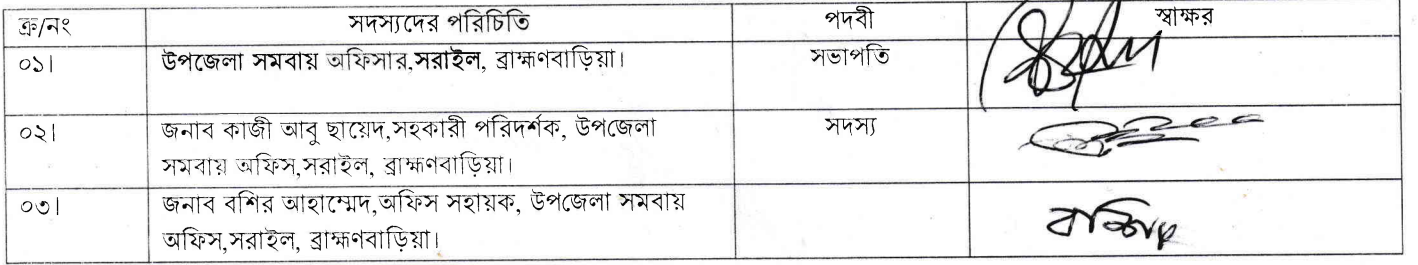 ক্র/নং সদস্যদের পরিচিতি পদবী স্বাক্ষর
০১। উপজেলা সমবায় অফিসার,সরাইল, ব্রাহ্মণবাড়িয়া। সভাপতি
০২। জনাব কাজী আবু ছায়েদ,সহকারী পরিদর্শক, উপজেলা সদস্য
সমবায় অফিস,সরাইল, ব্রাহ্মণবাড়িয়া।
০৩। জনাব বশির আহাম্মেদ,অফিস সহায়ক, উপজেলা সমবায়
অফিস,সরাইল, ব্রাহ্মণবাড়িয়া। বশির